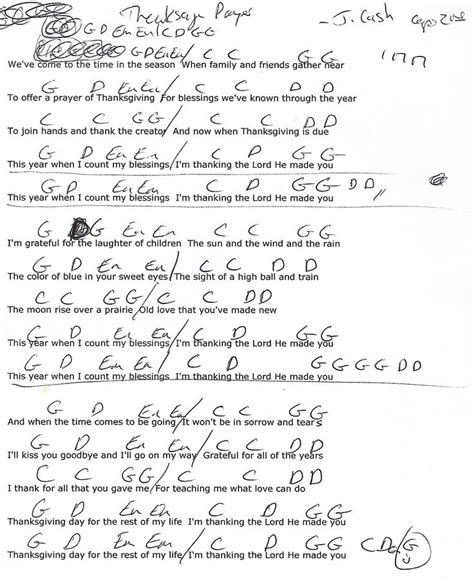 Thanksgiv Prayer - J. Cash Capo 2nd
G G D Em Em / C D G G
G D Em Em / C C G G
We've come to the time in the season When family and friends gather near
G D Em Em / C C D D
To offer a prayer of Thanksgiving For blessings we've known through the year
C C G G / C C D D
To join hands and thank the creator And now when Thanksgiving is due
G D Em Em / C D G G
This year when I count my blessings I'm thanking the Lord He made you
G D Em Em C D G G D D //
This year when I count my blessings I'm thanking the Lord He made you
G G Em Em / C C G G
I'm grateful for the laughter of children The sun and the wind and the rain
G D Em Em / C C D D
The color of blue in your sweet eyes The sight of a high ball and train
C C G G / C C D D
The moon rise over a prairie Old love that you've made new
G D Em Em / C D G G
This year when I count my blessings I'm thanking the Lord He made you
G D Em Em / C D G G G G D D
This year when I count my blessings I'm thanking the Lord He made you
G D Em Em / C C G G
And when the time comes to be going It won't be in sorrow and tears
G D Em Em / C C D D
I'll kiss you goodbye and I'll go on my way Grateful for all of the years
C C G G / C C D D
I thank for all that you gave me For teaching me what love can do
G D Em Em / C D G G
Thanksgiving day for the rest of my life I'm thanking the Lord He made you
G D Em Em / C D G G C D G / G
Thanksgiving day for the rest of my life I'm thanking the Lord He made you